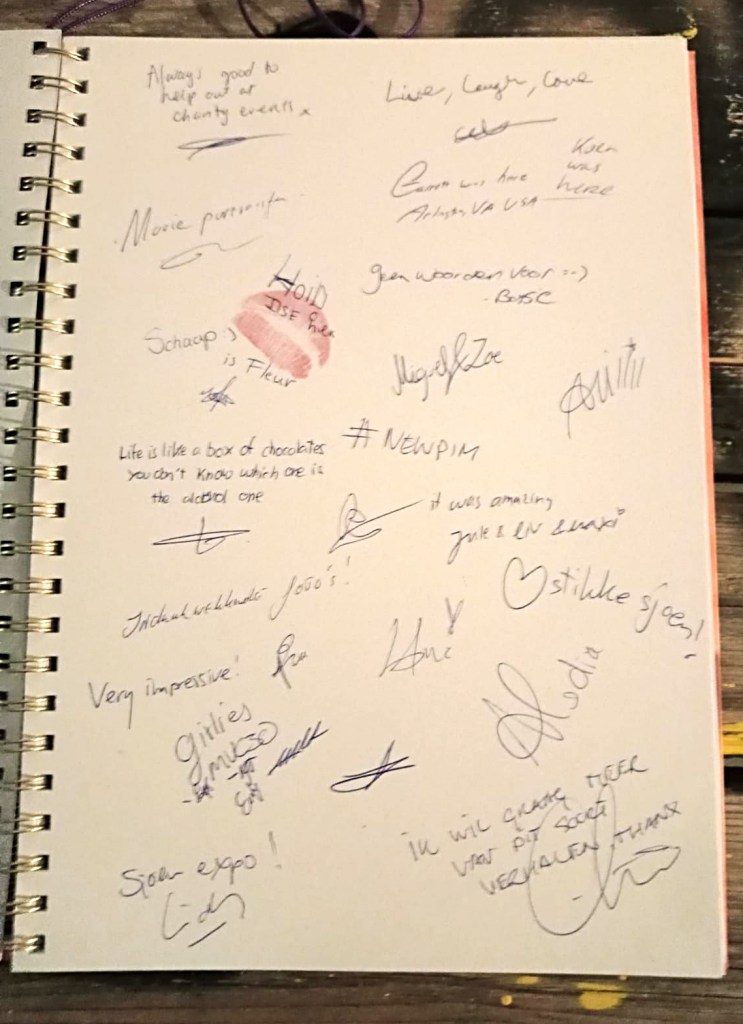 Always good to
help out at
charity events x
Live, Laugh, Love
was here
Arlington VA USA
Koen
was
here
Mooie portretten
Hoin
ILSE
geen woorden voor :-)
Schaap :)
is Fleur
Miguel & Zoe
Life is like a box of chocolates
you don't know which one is
the alcohol one
#NEWPIM
it was amazing
Jule & Liv & Maxi
Indrukwekkende foto's!
stikke sjoen!
Very impressive!
Girlies
Alodia
IK WIL GRAAG MEER
VAN DIT SOORT
VERHALEN, THANX
Sjoen expo!